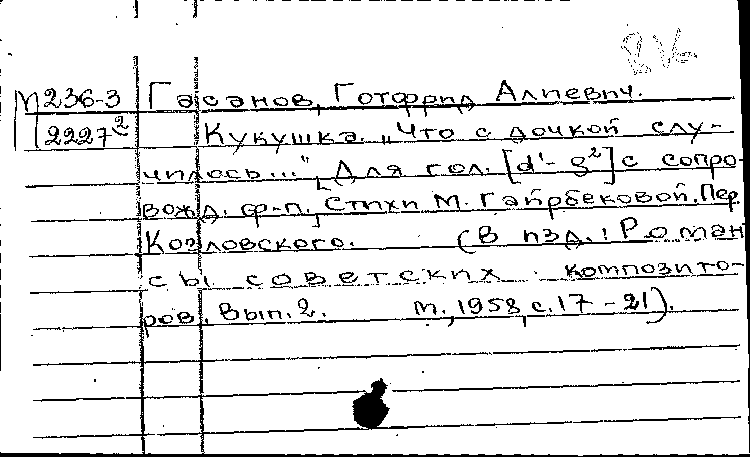 М236-3 Гасанов, Готфрид Алиевич.
2227² Кукушка. „Что с дочкой слу-
чилось...", Для гол. [d¹- g²] с сопро-
вожд. ф-п., Стихи М. Гаирбековой. Пер.
Козловского. (В изд.: Роман
сы советских композито-
ров. Вып. 2. М., 1958, с. 17 - 21).